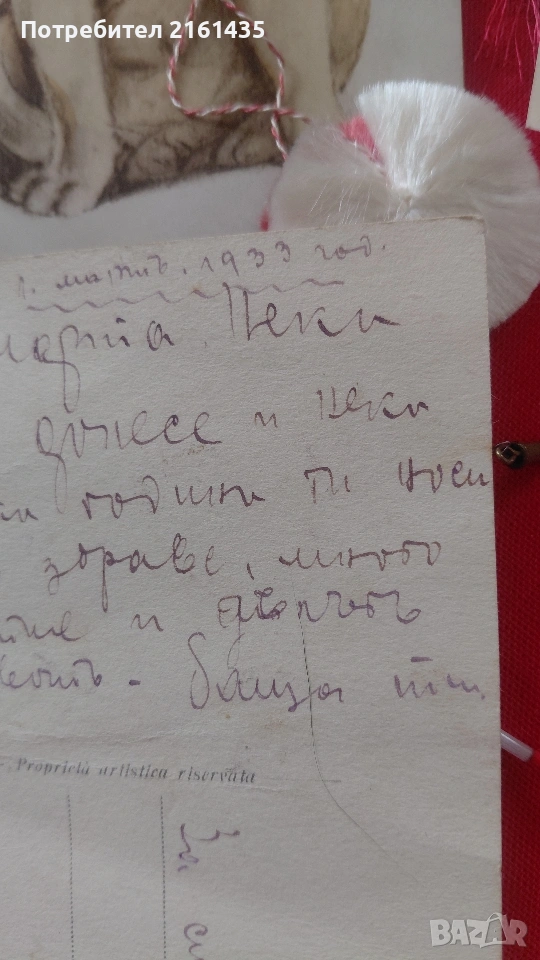 Потребител 2161435
1. мартъ. 1933 год.
марта. Неки
донесе и неки
години ти носи
здраве, много
и
- баща ти.
Proprietà artistica riservata
За
BAZAR